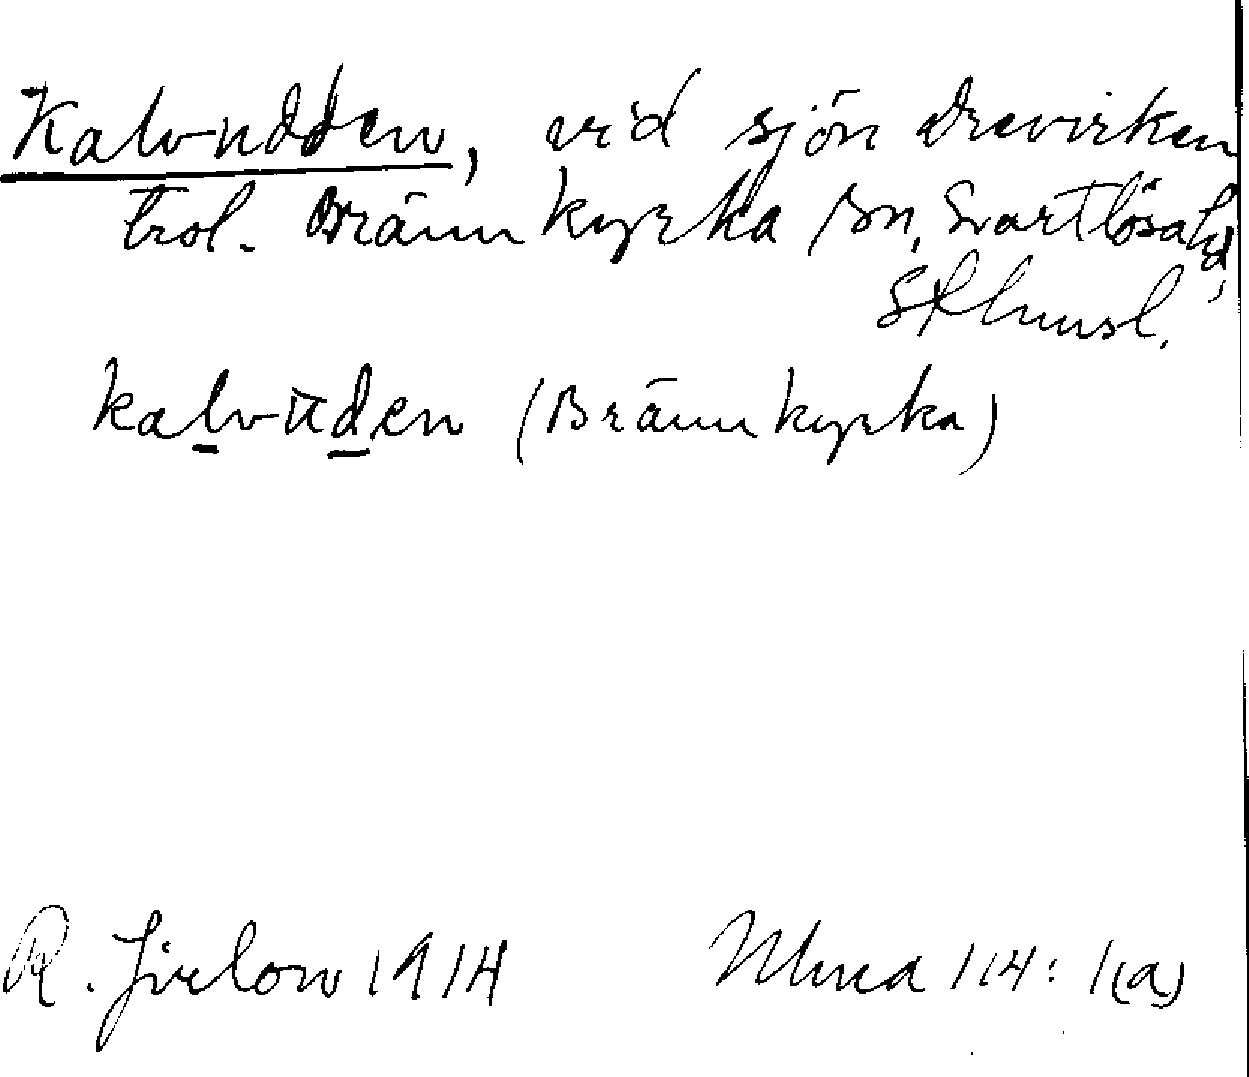 Kalvudden, vid sjön Drevviken
trol. Brännkyrka sn, Svartlösa hd,
Sthlmsl.
kalvūden (Brännkyrka)
R. Jirlow 1914 Ulma 114: 1(a)